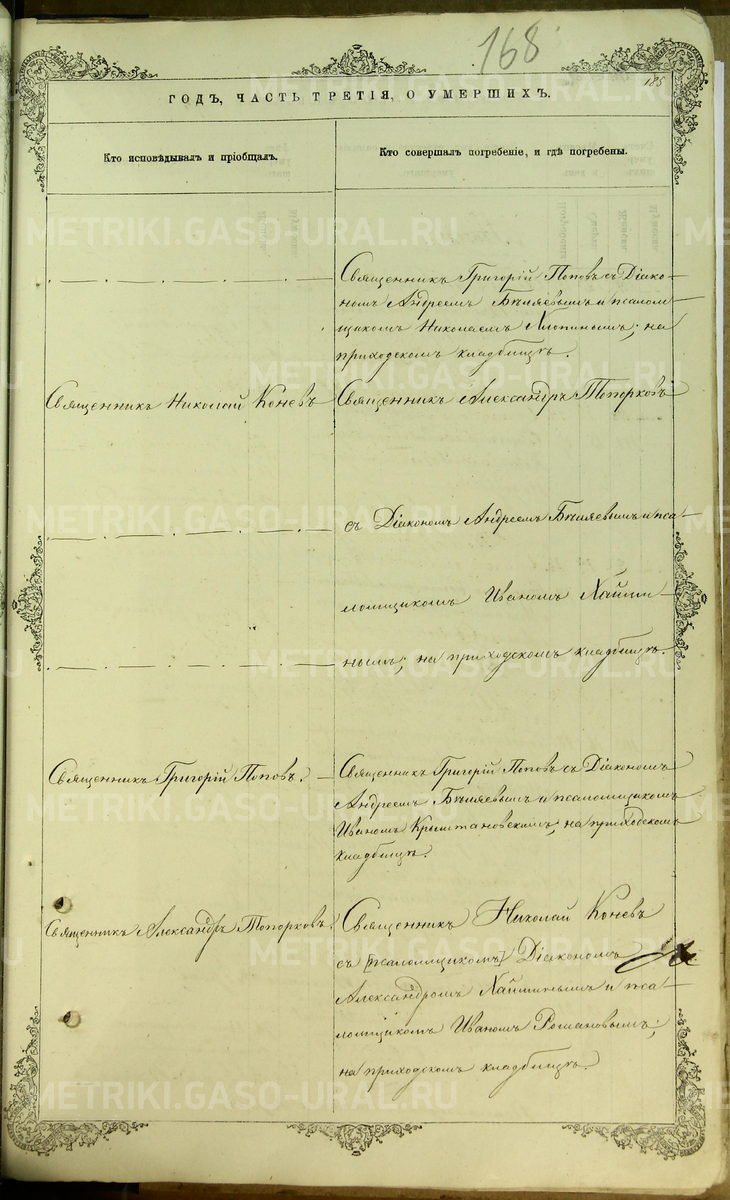 168
185
ГОДЪ, ЧАСТЬ ТРЕТІЯ, О УМЕРШИХЪ.
Кто исповѣдывалъ и пріобщалъ.
Кто совершалъ погребеніе, и гдѣ погребены.
Священникъ Григорій Поповъ съ Діако-
номъ Андреемъ Бѣляевымъ и псалом-
щикомъ Николаемъ; на
приходскомъ кладбищѣ.
Священникъ Николай Коневъ
Священникъ Александръ Топорковъ
съ Діакономъ Андреемъ Бѣляевымъ и пса-
ломщикомъ Иваномъ Хайми-
нымъ; на приходскомъ кладбищѣ.
Священникъ Григорій Поповъ.
Священникъ Григорій Поповъ съ Діакономъ
Андреемъ Бѣляевымъ и псаломщикомъ
Иваномъ Крыштановскимъ; на приходскомъ
кладбищѣ.
Священникъ Александръ Топорковъ.
Священникъ Николай Коневъ
съ [псаломщикомъ] Діакономъ
Александромъ Хайминымъ и пса-
ломщикомъ Иваномъ Романовымъ;
на приходскомъ кладбищѣ.
METRIKI.GASO-URAL.RU